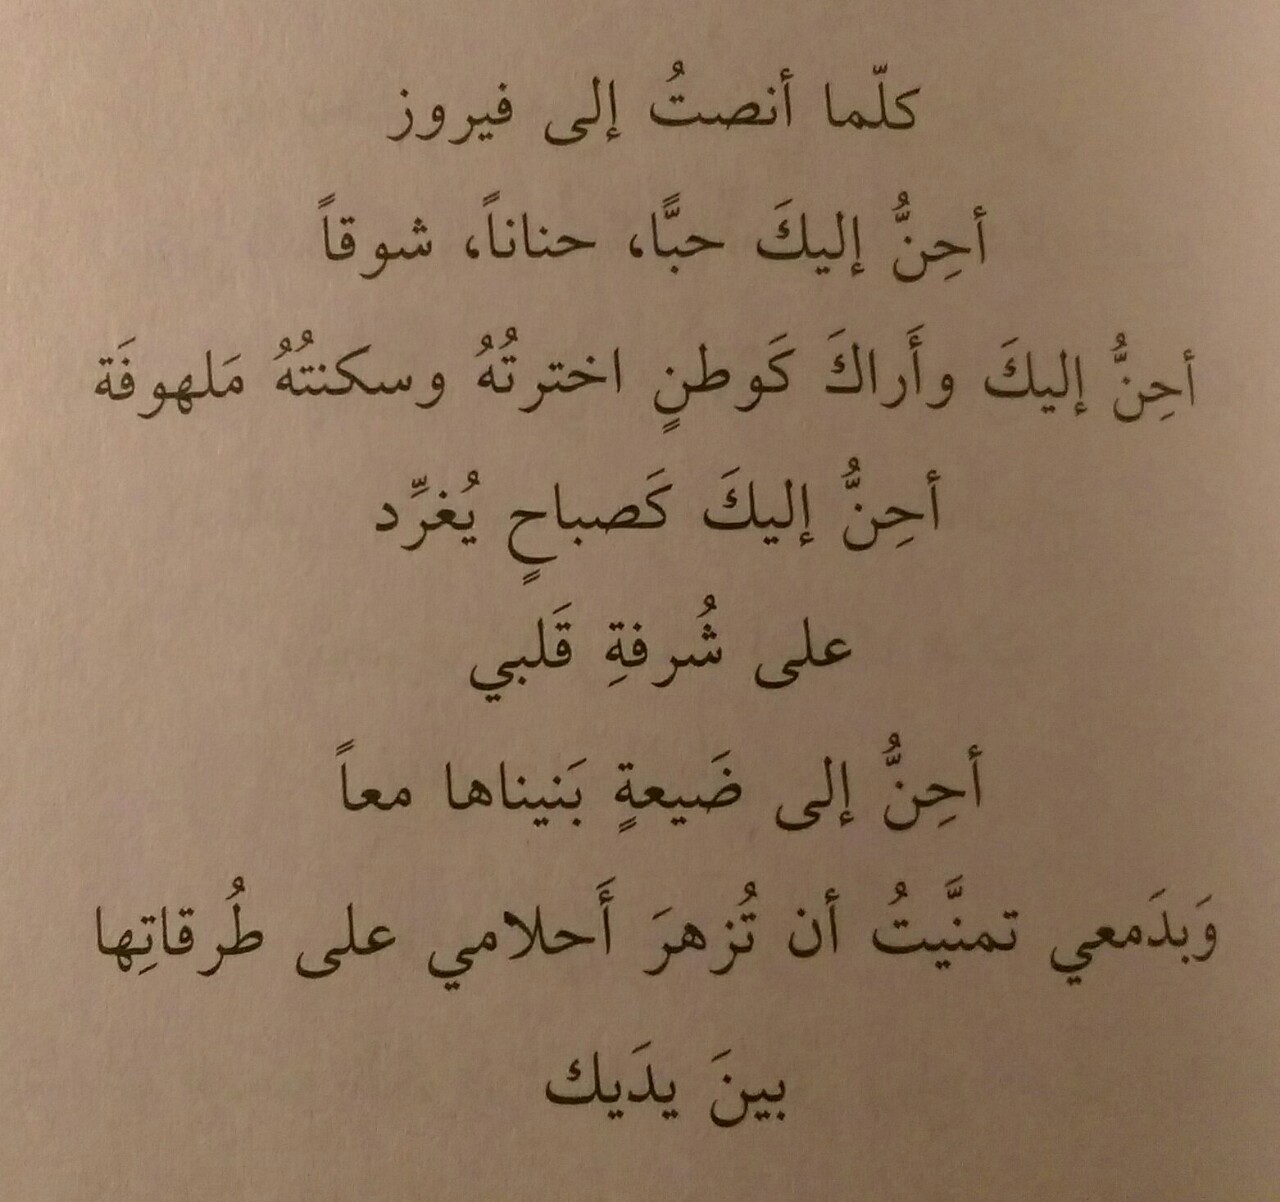 كلّما أنصتُ إلى فيروز
أحِنُّ إليكَ حبًّا، حناناً، شوقاً
أحِنُّ إليكَ وأَراكَ كَوطنٍ اخترتُهُ وسكنتُهُ مَلهوفَة
أحِنُّ إليكَ كَصباحٍ يُغرِّد
على شُرفةِ قَلبي
أحِنُّ إلى ضَيعةٍ بَنيناها معاً
وَبدَمعي تمنَّيتُ أن تُزهرَ أَحلامي على طُرقاتِها
بينَ يدَيك